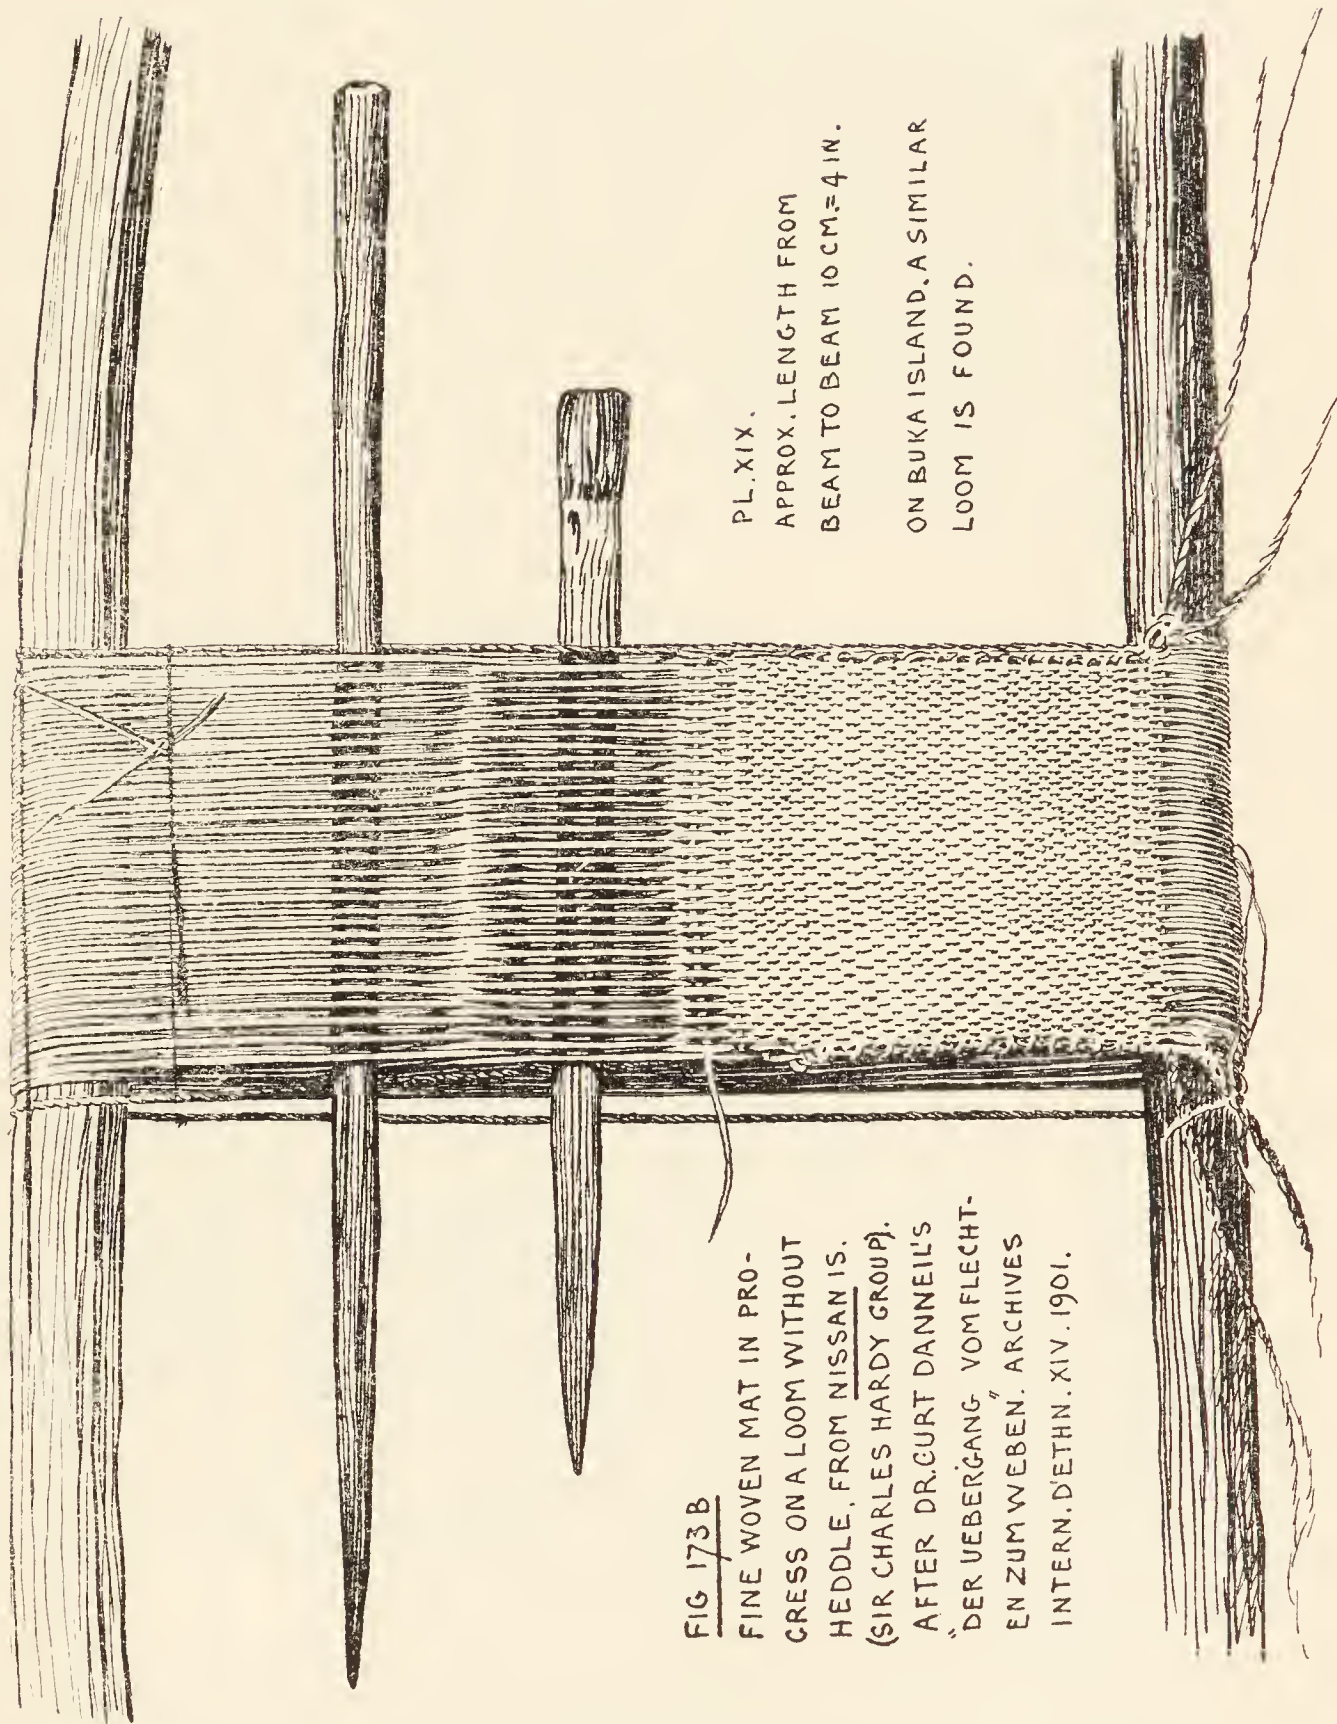 FIG 173 B
FINE WOVEN MAT IN PRO-
GRESS ON A LOOM WITHOUT
HEDDLE, FROM NISSAN IS.
(SIR CHARLES HARDY GROUP).
AFTER DR. CURT DANNEIL'S
"DER UEBERGANG VOM FLECHT-
EN ZUM WEBEN." ARCHIVES
INTERN. D'ETHN. XIV. 1901.
PL. XIX.
APPROX. LENGTH FROM
BEAM TO BEAM 10 CM. = 4 IN.
ON BUKA ISLAND, A SIMILAR
LOOM IS FOUND.